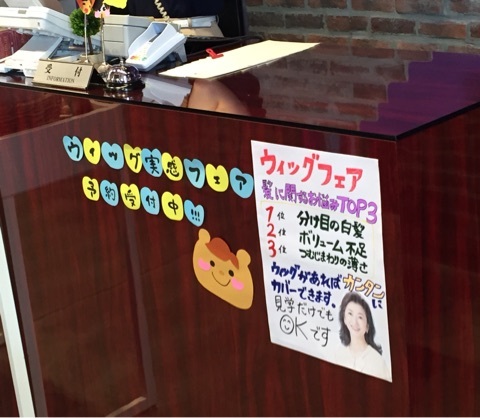 受付
INFORMATION
ウィッグ実感フェア
予約受付中!!!
ウィッグフェア
髪に関するお悩みTOP3
1位 分け目の白髪
2位 ボリューム不足
3位 つむじまわりの薄さ
ウィッグがあればカンタンに
カバーできます。
見学だけでも
OKです